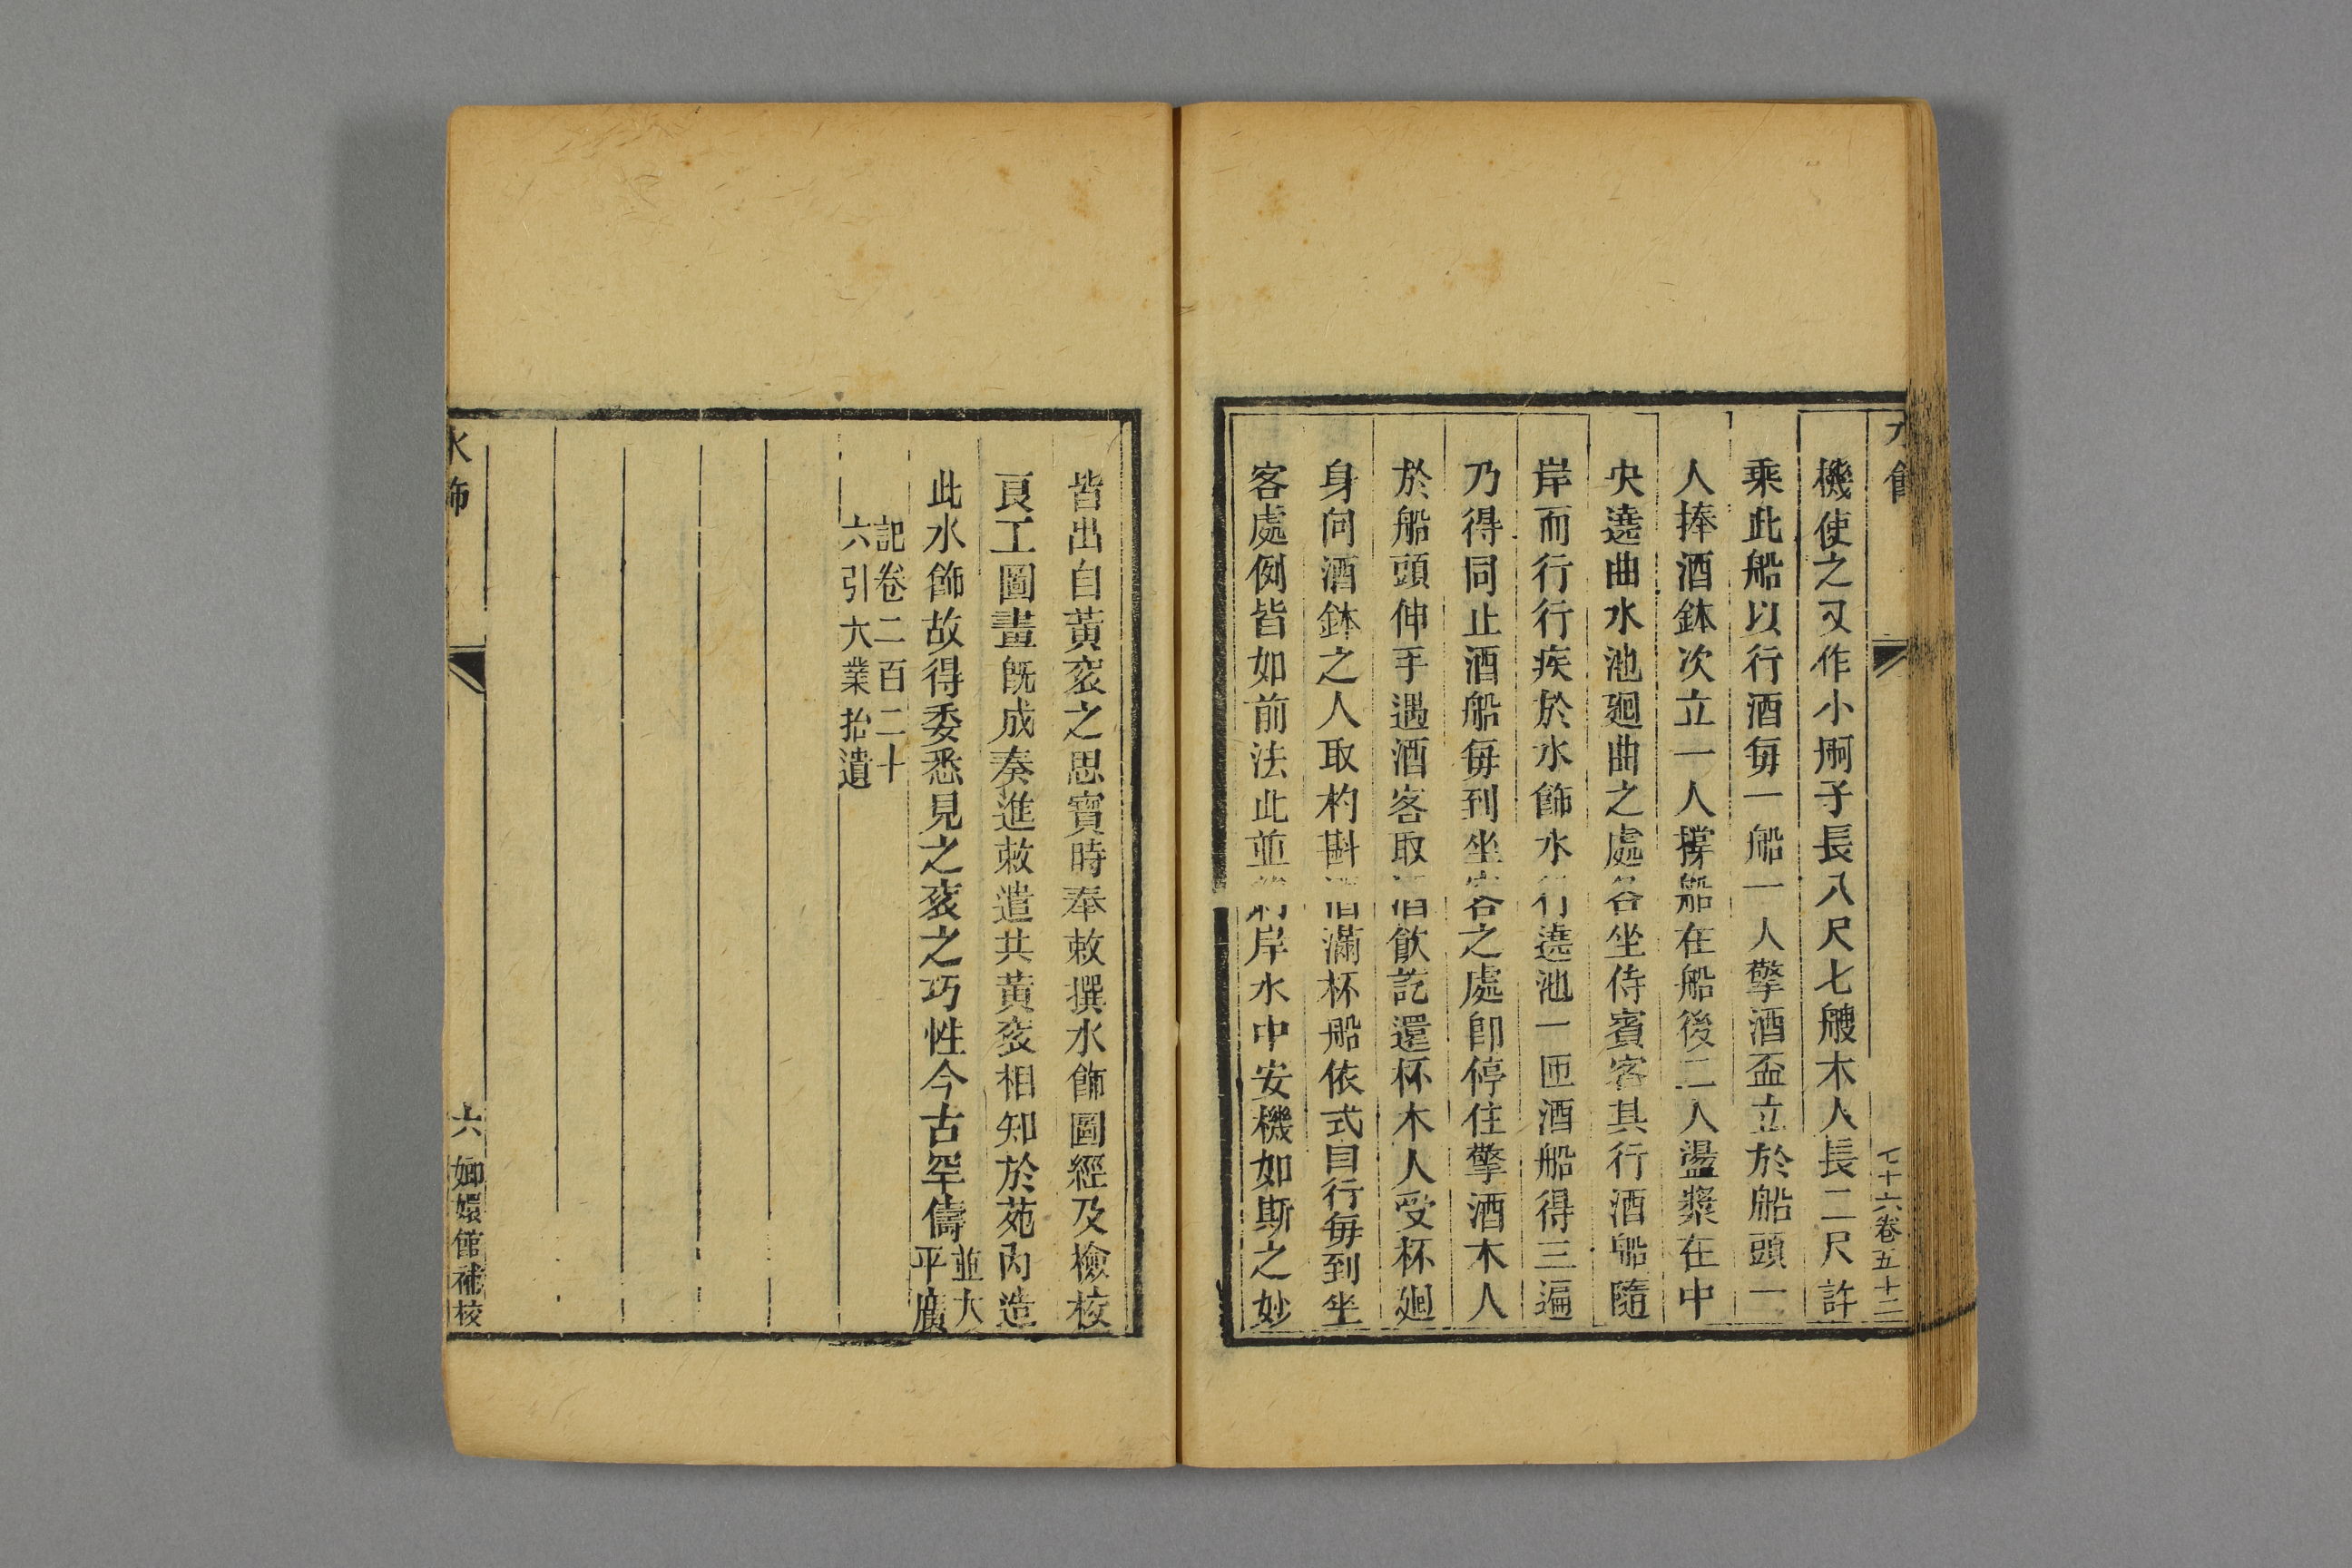 水飾
七十六卷五十二
機使之又作小舸子長八尺七艘木人長二尺許
乘此船以行酒每一船一人擎酒盃立於船頭一
人捧酒鉢次立一人撐船在船後二人盪槳在中
央遶曲水池廻曲之處各坐侍賓客其行酒船隨
岸而行行疾於水飾水行遶池一匝酒船得三遍
乃得同止酒船每到坐客之處卽停住擎酒木人
於船頭伸手遇酒客取酒飲訖還杯木人受杯廻
身向酒鉢之人取杓斟酒滿杯船依式自行每到坐
客處例皆如前法此並約岸水中安機如斯之妙
皆出自黃袞之思寶時奉敕撰水飾圖經及檢校
良工圖畫旣成奏進敕遣共黃袞相知於苑內造
此水飾故得委悉見之袞之巧性今古罕儔並大平廣
記卷二百二十
六引大業拾遺
水飾
六
嫏嬛館補校